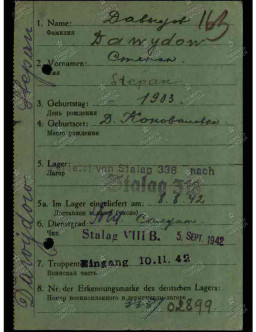 163
1. Name: Давыдов
Фамилия
Dawydow
2. Vornamen: Степан
Имя
Stepan
3. Geburtstag: 1903
День рождения
4. Geburtsort: Д. Коновалово
Место рождения
5. Lager: von Stalag 338 nach
Лагерь
Stalag 318
5a. Im Lager eingeliefert am: 8.8.42.
6. Dienstgrad: Солдат
Чин
Stalag VIII B. 5. SEPT. 1942
7. Truppenteil Eingang 10.11.42
Воинская часть
8. Nr. der Erkennungsmarke des deutschen Lagers:
02899
Dawydow Stepan